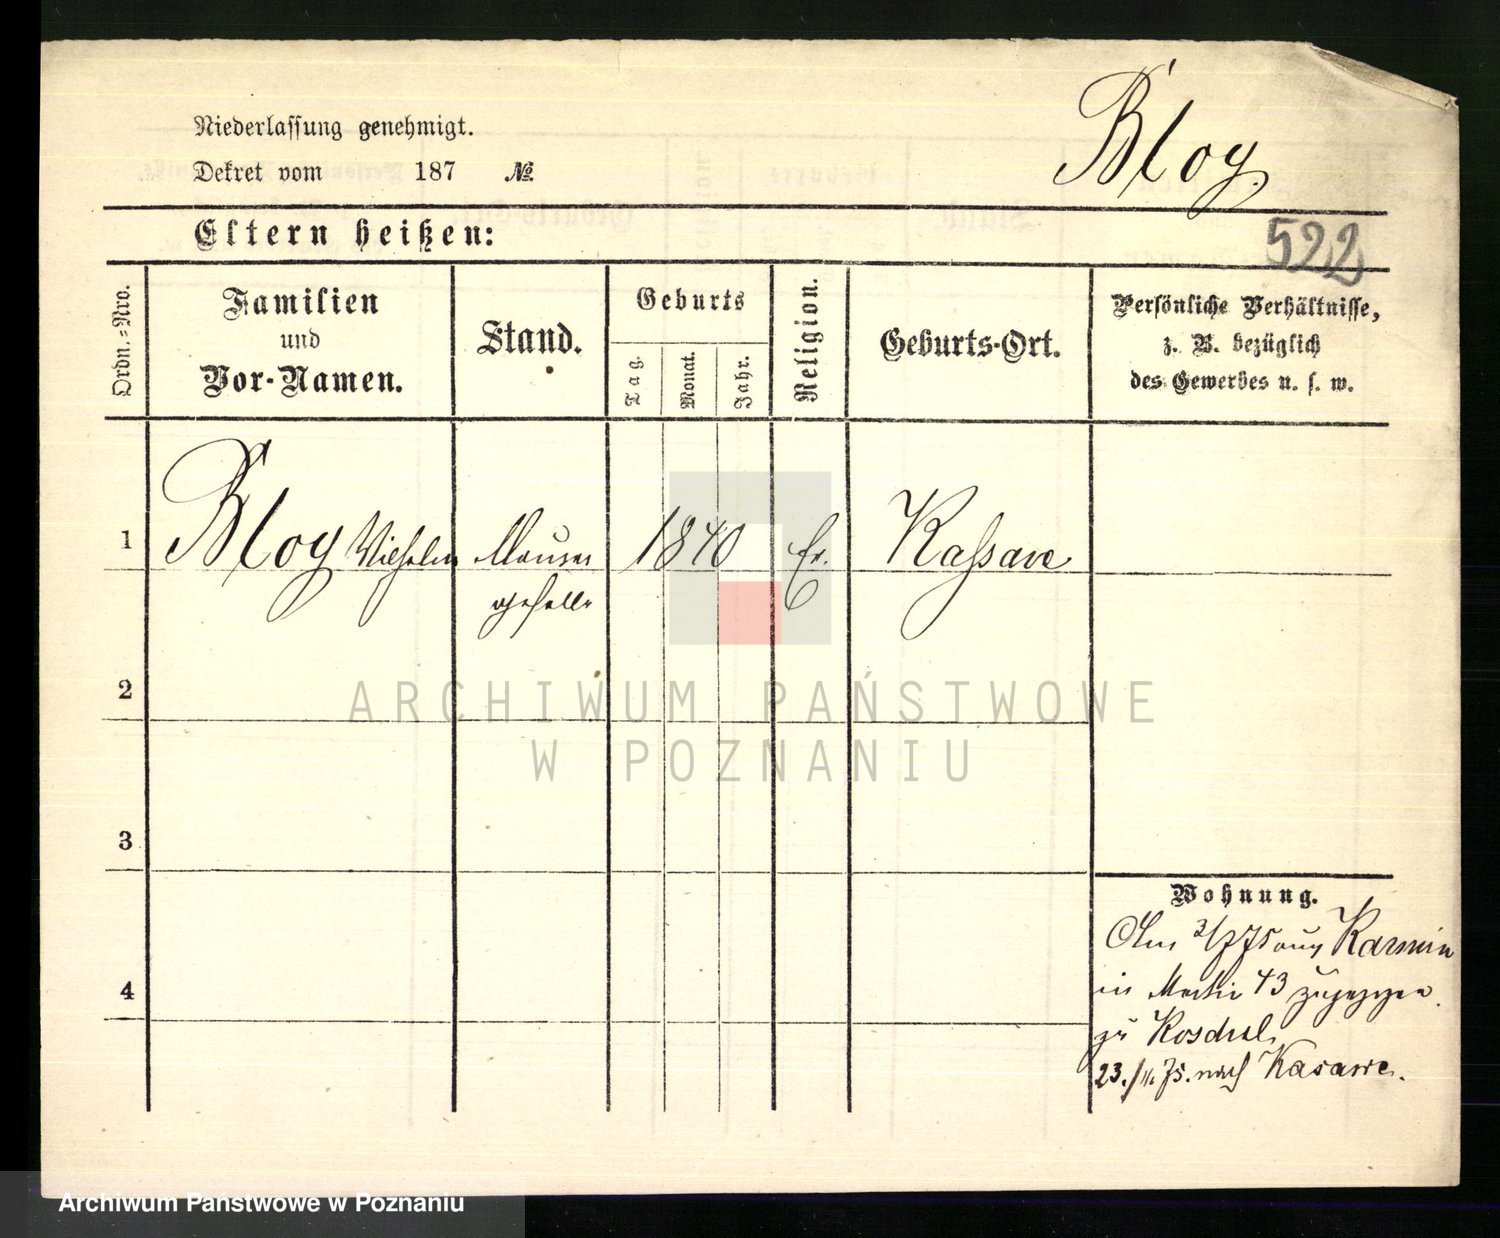 Bloy.
Niederlassung genehmigt.
Dekret vom 187 №
Eltern heißen:
522
Ordn.-Nro.
Familien
und
Vor-Namen.
Stand.
Geburts
Tag.
Monat.
Jahr.
Religion.
Geburts-Ort.
Persönliche Verhältnisse,
z. B. bezüglich
des Gewerbes u. s. w.
1 Bloy Wilhelm Maurer 1840 Ev. Kassawe
geselle
2
3
4
Wohnung.
Am 2/7 75 aus Karmin
in Martin 43 zugezogen.
zu
23./11. 75. nach Kasawe.
ARCHIWUM PAŃSTWOWE
W POZNANIU
Archiwum Państwowe w Poznaniu